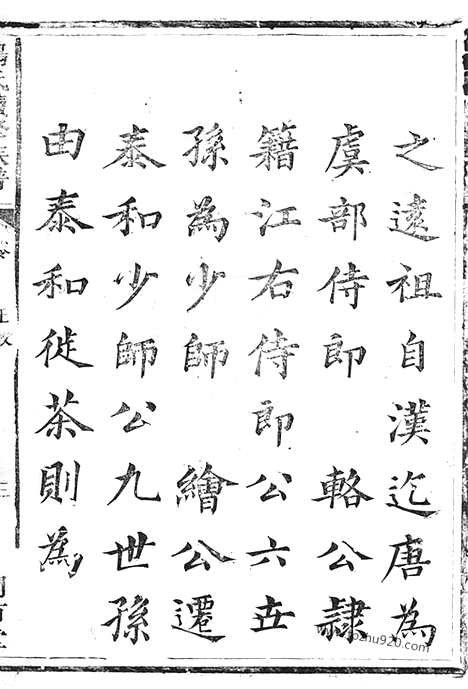 之遠祖自漢迄唐為
虞部侍郎　輅公隸
籍江右侍郎公六世
孫為少師　繪公遷
泰和少師公九世孫
由泰和徙茶則為